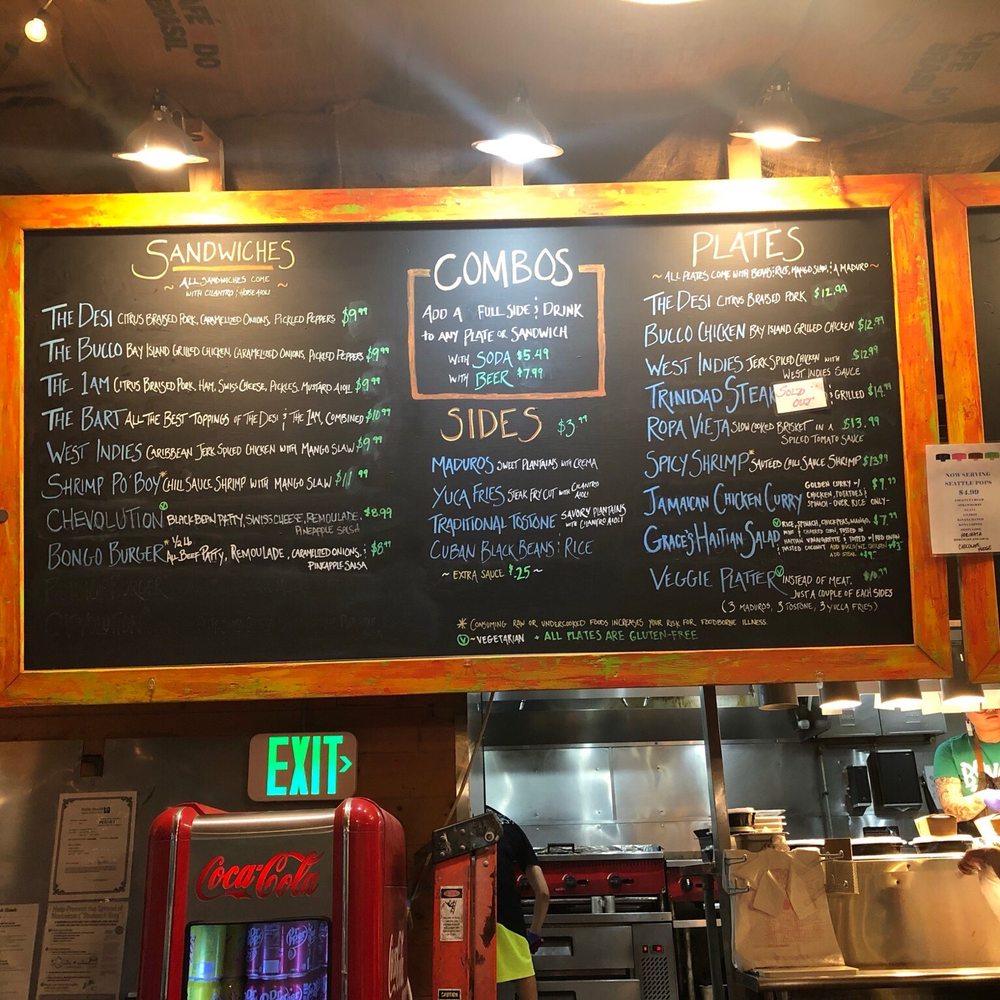 CAFÉ DO BRASIL
SANDWICHES
~ ALL SANDWICHES COME
WITH CILANTRO & HORSE AIOLI ~
THE DESI CITRUS BRAISED PORK, CARAMELIZED ONIONS, PICKLED PEPPERS $9.99
THE BUCCO BAY ISLAND GRILLED CHICKEN, CARAMELIZED ONIONS, PICKLED PEPPERS $9.99
THE 1AM CITRUS BRAISED PORK, HAM, SWISS CHEESE, PICKLES, MUSTARD AIOLI $9.99
THE BART ALL THE BEST TOPPINGS OF THE DESI & THE 1AM, COMBINED $10.99
WEST INDIES CARIBBEAN JERK SPICED CHICKEN WITH MANGO SLAW $9.99
SHRIMP PO' BOY* CHILI SAUCE SHRIMP WITH MANGO SLAW $11.99
CHEVOLUTION V BLACK BEAN PATTY, SWISS CHEESE, REMOULADE, $8.99
PINEAPPLE SALSA
BONGO BURGER* 1/2 LB ALL-BEEF PATTY, REMOULADE, CARAMELIZED ONIONS, & $8.99
PINEAPPLE SALSA
COMBOS
ADD A FULL SIDE & DRINK
TO ANY PLATE OR SANDWICH
WITH SODA $5.49
WITH BEER $7.99
SIDES $3.99
MADUROS SWEET PLANTAINS WITH CREMA
YUCA FRIES STEAK FRY CUT WITH CILANTRO AIOLI
TRADITIONAL TOSTONE SAVORY PLANTAINS WITH CILANTRO AIOLI
CUBAN BLACK BEANS & RICE
~ EXTRA SAUCE $.25 ~
PLATES
~ ALL PLATES COME WITH BEANS & RICE, MANGO SLAW, & A MADURO ~
THE DESI CITRUS BRAISED PORK $12.99
BUCCO CHICKEN BAY ISLAND GRILLED CHICKEN $12.99
WEST INDIES JERK SPICED CHICKEN WITH $12.99
WEST INDIES SAUCE
TRINIDAD STEAK SOLD OUT & GRILLED $14.99
ROPA VIEJA SLOW COOKED BRISKET IN A $13.99
SPICED TOMATO SAUCE
SPICY SHRIMP* SAUTÉED CHILI SAUCE SHRIMP $13.99
JAMAICAN CHICKEN CURRY GOLDEN CURRY W/ $9.99
CHICKEN, POTATOES &
SPINACH - OVER RICE ONLY -
GRACE'S HAITIAN SALAD V RICE, SPINACH, CHICKPEAS, MANGO, $7.99
HAITIAN VINAIGRETTE & TOPPED W/ RED ONION
& TOASTED COCONUT
VEGGIE PLATTER V INSTEAD OF MEAT. $10.99
JUST A COUPLE OF EACH SIDES
(3 MADUROS, 3 TOSTONE, 3 YUCCA FRIES)
* CONSUMING RAW OR UNDERCOOKED FOODS INCREASES YOUR RISK FOR FOODBORNE ILLNESS.
V ~ VEGETARIAN + ALL PLATES ARE GLUTEN-FREE
NOW SERVING
SEATTLE POPS
$4.99
EXIT
Coca-Cola
CAUTION